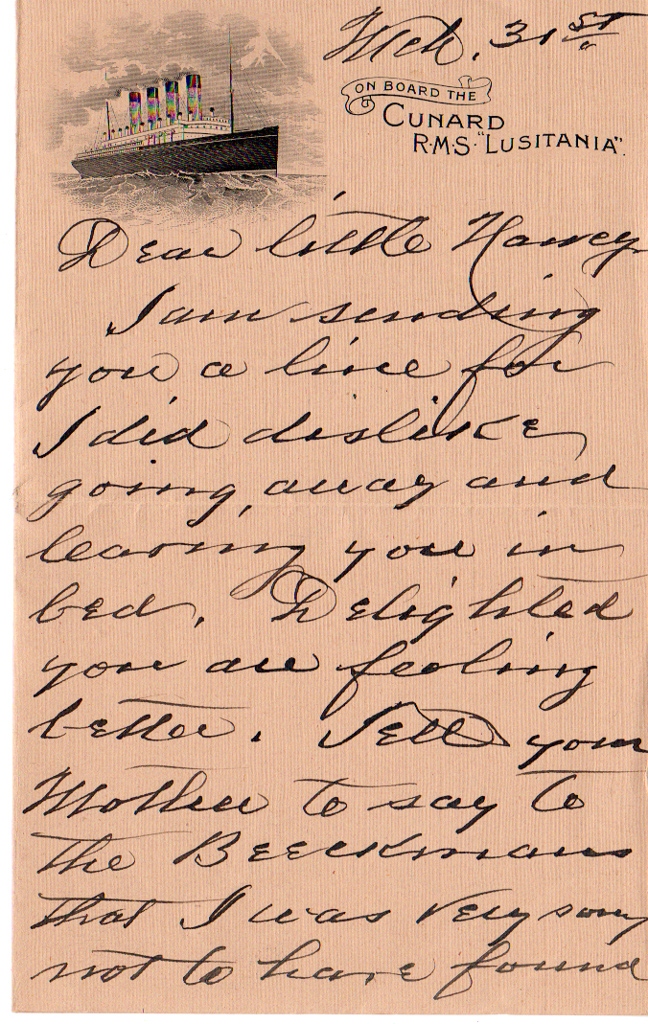 Mch. 31st
ON BOARD THE
CUNARD
R.M.S. "LUSITANIA".
Dear little Harvey
I am sending
you a line for
I did dislike
going away and
leaving you in
bed. Delighted
you are feeling
better. Tell your
Mother to say to
the Beeckmans
that I was very sorry
not to have found